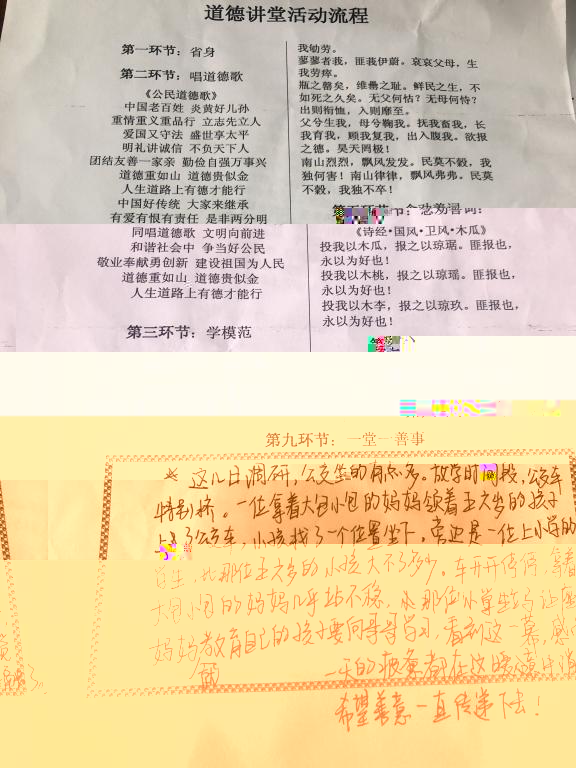 道德讲堂活动流程
第一环节：省身
第二环节：唱道德歌
《公民道德歌》
中国老百姓 炎黄好儿孙
重情重义重品行 立志先立人
爱国又守法 盛世享太平
明礼讲诚信 不负天下人
团结友善一家亲 勤俭自强万事兴
道德重如山 道德贵似金
人生道路上有德才能行
中国好传统 大家来继承
有爱有恨有责任 是非两分明
同唱道德歌 文明向前进
和谐社会中 争当好公民
敬业奉献勇创新 建设祖国为人民
道德重如山 道德贵似金
人生道路上有德才能行
第三环节：学模范
我劬劳。
蓼蓼者莪，匪莪伊蔚。哀哀父母，生
我劳瘁。
瓶之罄矣，维罍之耻。鲜民之生，不
如死之久矣。无父何怙？无母何恃？
出则衔恤，入则靡至。
父兮生我，母兮鞠我。抚我畜我，长
我育我，顾我复我，出入腹我。欲报
之德。昊天罔极！
南山烈烈，飘风发发。民莫不穀，我
独何害！南山律律，飘风弗弗。民莫
不穀，我独不卒！
《诗经·国风·卫风·木瓜》
投我以木瓜，报之以琼琚。匪报也，
永以为好也！
投我以木桃，报之以琼瑶。匪报也，
永以为好也！
投我以木李，报之以琼玖。匪报也，
永以为好也！
第九环节：一堂一善事
这几日调研，公交坐的有点多。放学时间段，公交车
特别挤。一位拿着大包小包的妈妈领着五六岁的孩子
上了公交车，小孩找了一个位置坐下。旁边是一位上小学的
生，比那位五六岁的小孩大不了多少。车开开停停，拿着
大包小包的妈妈几乎站不稳，那位小学生马上让座
妈妈教育自己的孩子要向哥哥学习，看到这一幕，感
一天的疲惫都在这
希望善意一直传递下去！